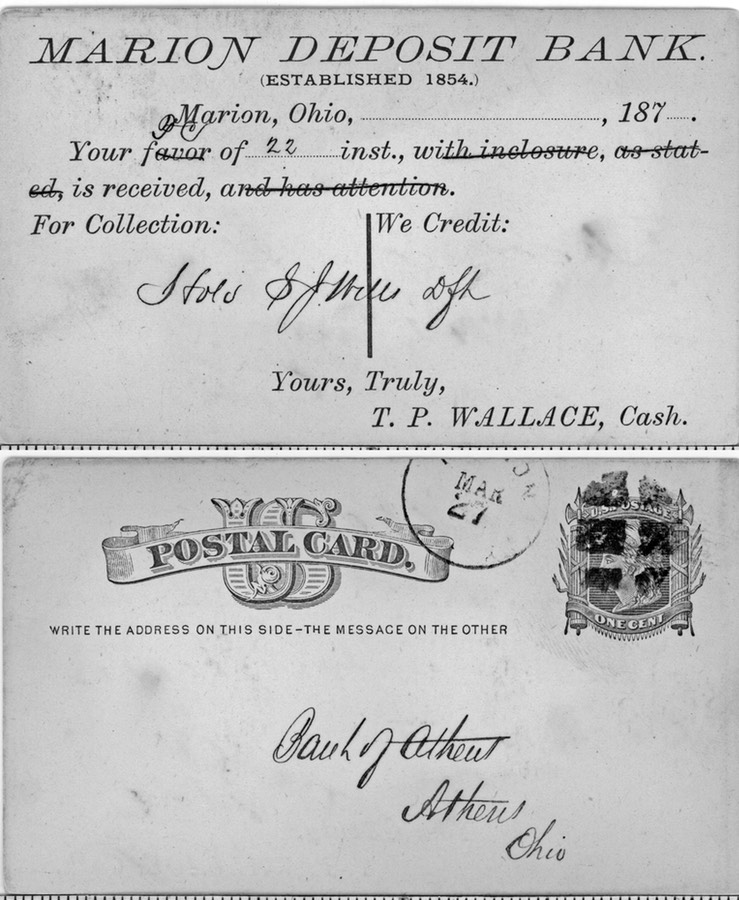 MARION DEPOSIT BANK.
(ESTABLISHED 1854.)
Marion, Ohio, , 187 .
Your favor of 22 inst., with inclosure, as stat-
ed, is received, and has attention.
For Collection: We Credit:
S J Wills
Yours, Truly,
T. P. WALLACE, Cash.
MAR
27
U.S. POSTAGE
US
POSTAL CARD.
ONE CENT
WRITE THE ADDRESS ON THIS SIDE–THE MESSAGE ON THE OTHER
Bank of Athens
Athens
Ohio